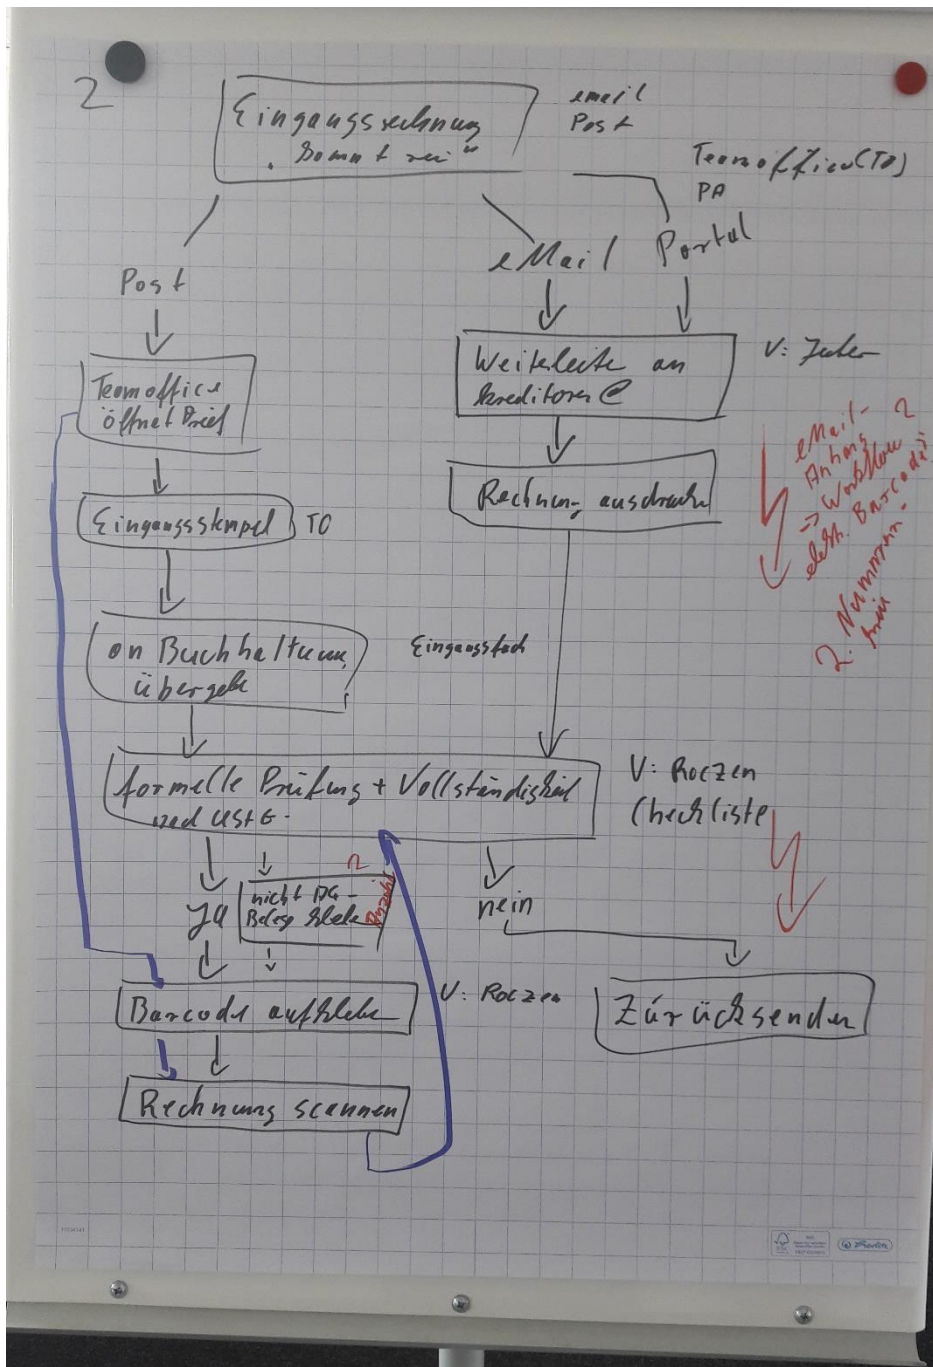 2
Eingangsrechnung
„kommt rein"
email
Post
Teamoffice (TO)
PA
Post
eMail
Portal
Teamoffice
öffnet Brief
Weiterleite an
kreditoren@
V: Jeder
Eingangsstempel
TO
Rechnung ausdrucke
eMail-
Anhang
-> Workflow
elektr. Barcode
2. Nummern-
kreis
an Buchhaltung
übergebe
Eingangsfach
formelle Prüfung + Vollständigkeit
nach UStG
V: Roczen
Checkliste
Ja
nicht
Beleg klebe
nein
Barcode aufklebe
V: Roczen
Zurücksenden
Rechnung scannen